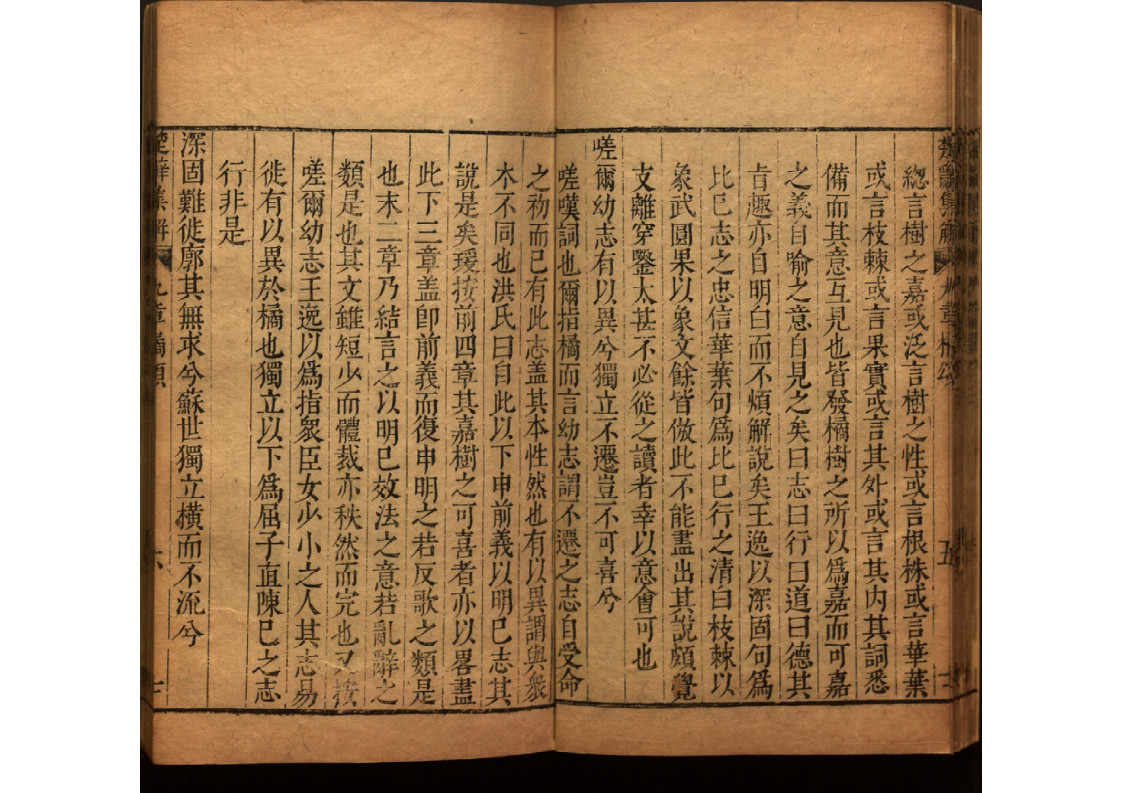 總言樹之嘉或泛言樹之性或言根株或言華葉
或言枝棘或言果實或言其外或言其內其詞悉
備而其意互見也皆發橘樹之所以爲嘉而可嘉
之義自喻之意自見之矣曰志曰行曰道曰德其
旨趣亦自明白而不煩解說矣王逸以深固句爲
比已志之忠信華葉句爲比已行之清白枝棘以
象武圓果以象文餘皆倣此不能盡出其說頗覺
支離穿鑿太甚不必從之讀者幸以意會可也
嗟爾幼志有以異兮獨立不遷豈不可喜兮
嗟嘆詞也爾指橘而言幼志謂不遷之志自受命
之初而已有此志盖其本性然也有以異謂與衆
木不同也洪氏曰自此以下申前義以明已志其
說是矣瑗按前四章其嘉樹之可喜者亦以畧盡
此下三章盖卽前義而復申明之若反歌之類是
也末二章乃結言之以明已效法之意若亂辭之
類是也其文雖短少而體裁亦秩然而完也又按
嗟爾幼志王逸以爲指衆臣女少小之人其志易
徙有以異於橘也獨立以下爲屈子直陳已之志
行非是
深固難徙廓其無求兮蘇世獨立橫而不流兮
楚辭集解 九章橘頌 六